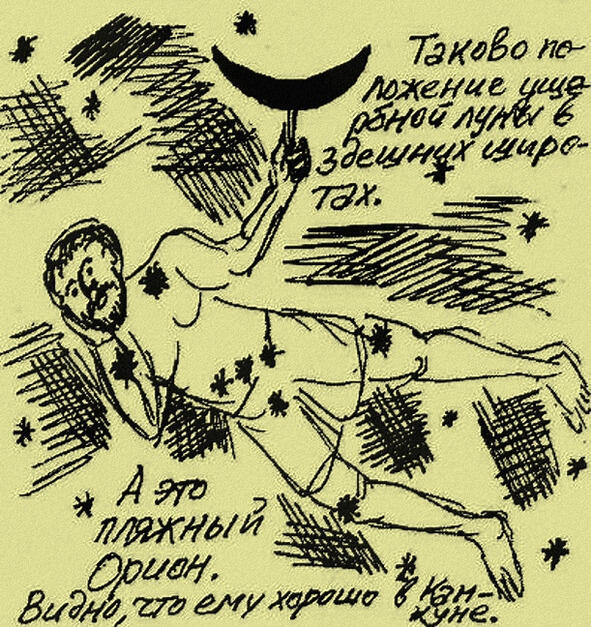 Таково по-
ложение уще-
рбной луны в
здешних широ-
тах.
А это
пляжный
Орион.
Видно, что ему хорошо в Кан-
куне.